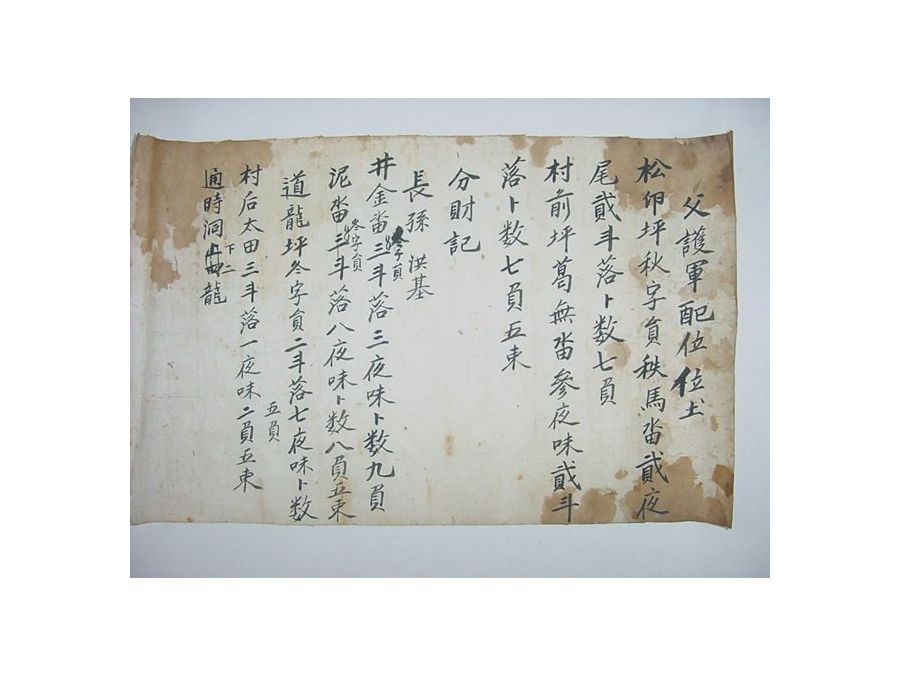 父護軍配位位土
松卯坪秋字員秩馬畓貳夜
尾貳斗落卜数七負
村前坪葛無畓參夜味貳斗
落卜数七負五束
分財記
長孫 洪基
井金畓冬字員三斗落三夜味卜数九負
泥畓冬字員三斗落八夜味卜数八負五束
道龍坪冬字員二斗落七夜味卜数
五負
村后太田三斗落一夜味二負五束
通時洞 下二 龍